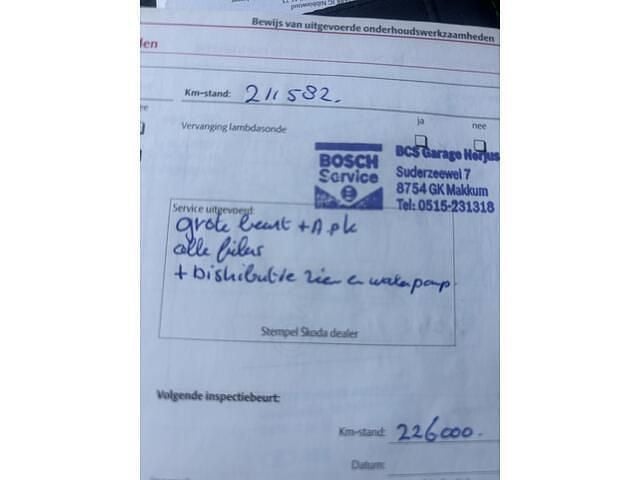 Bewijs van uitgevoerde onderhoudswerkzaamheden
den
Km-stand: 211582.
ee
ja
nee
Vervanging lambdasonde
BOSCH
Service
BCS Garage Horjus
Suderzeewei 7
8754 GK Makkum
Tel: 0515-231318
Service uitgevoerd:
grote beurt + Apk
alle filters
+ Distributie riem en waterpomp
Stempel Škoda dealer
Volgende inspectiebeurt:
Km-stand: 226000.
Datum: